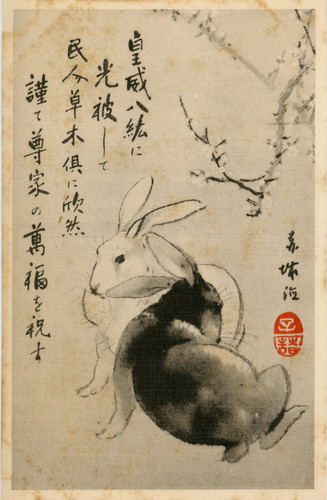 皇威八紘に
光被して
民人草木倶に欣然
謹で尊家の萬福を祝す